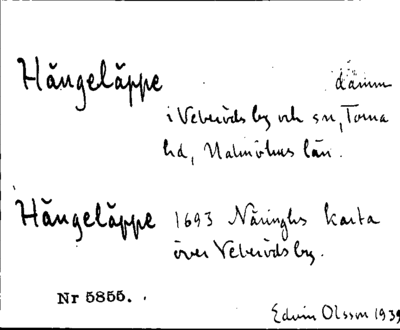 Hängeläppe
i Veberöds by och sn, Torna
hd, Malmöhus län.
Hängeläppe 1693 Näringhs karta
över Veberöds by.
Nr 5855.
Edwin Olsson 1939